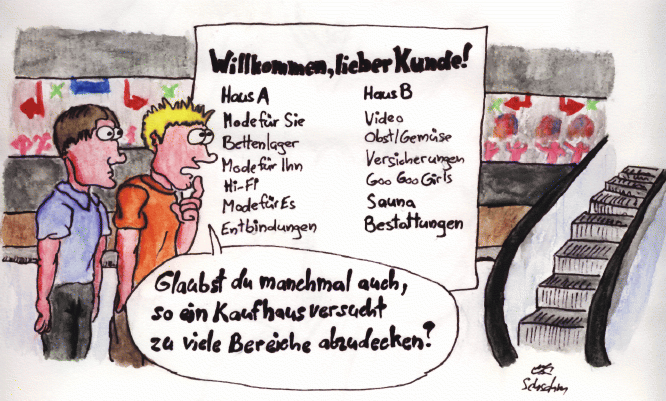 Willkommen, lieber Kunde!
Haus A
Mode für Sie
Bettenlager
Mode für Ihn
Hi-Fi
Mode für Es
Entbindungen
Haus B
Video
Obst/Gemüse
Versicherungen
Goo Goo Girls
Sauna
Bestattungen
Glaubst du manchmal auch,
so ein Kaufhaus versucht
zu viele Bereiche abzudecken?